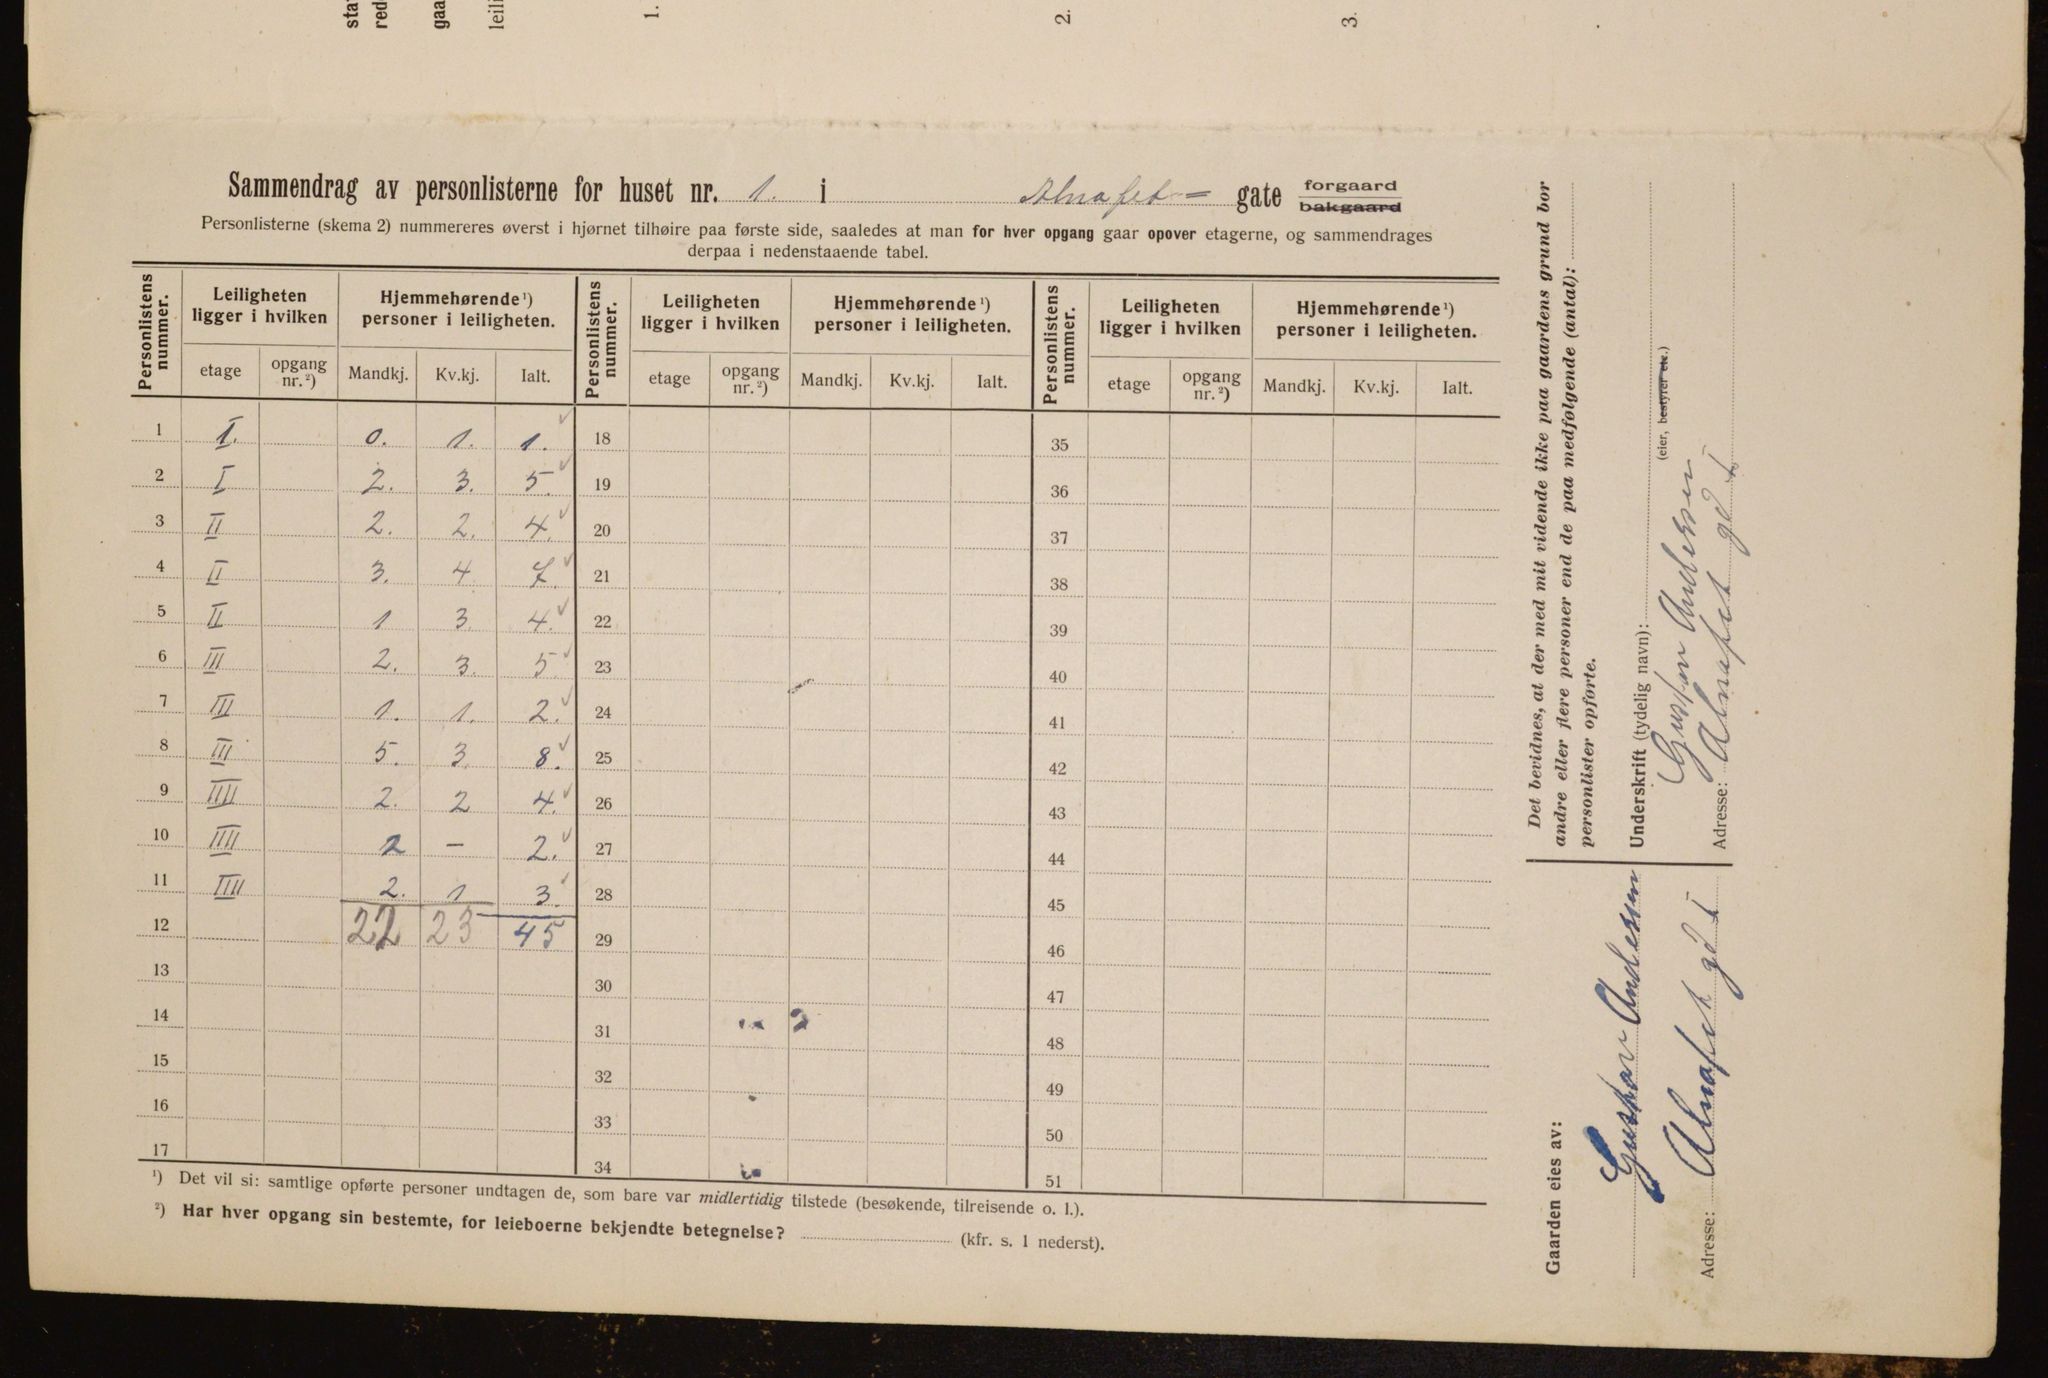 sta
red
gaa
leili
1.
2.
3.
Sammendrag av personlisterne for huset nr. 1. i Alnafet= gate forgaard bakgaard
Personlisterne (skema 2) nummereres øverst i hjørnet tilhøire paa første side, saaledes at man for hver opgang gaar opover etagerne, og sammendrages
derpaa i nedenstaaende tabel.
Personlistens nummer. Leiligheten ligger i hvilken Hjemmehørende¹) personer i leiligheten. Personlistens nummer. Leiligheten ligger i hvilken Hjemmehørende¹) personer i leiligheten. Personlistens nummer. Leiligheten ligger i hvilken Hjemmehørende¹) personer i leiligheten.
etage opgang nr.²) Mandkj. Kv.kj. Ialt. etage opgang nr.²) Mandkj. Kv.kj. Ialt. etage opgang nr.²) Mandkj. Kv.kj. Ialt.
1 I. 0. 1. 1. ✓ 18 35
2 I 2. 3. 5. ✓ 19 36
3 II 2. 2. 4. ✓ 20 37
4 II 3. 4. 7. ✓ 21 38
5 II 1 3. 4. ✓ 22 39
6 III 2. 3. 5. ✓ 23 40
7 III 1. 1. 2. ✓ 24 41
8 III 5. 3. 8. ✓ 25 42
9 IIII 2. 2 4. ✓ 26 43
10 IIII 2 – 2. ✓ 27 44
11 IIII 2. 1 3. ✓ 28 45
12 22 23 45 29 46
13 30 47
14 31 48
15 32 49
16 33 50
17 34 51
¹) Det vil si: samtlige opførte personer undtagen de, som bare var midlertidig tilstede (besøkende, tilreisende o. l.).
²) Har hver opgang sin bestemte, for leieboerne bekjendte betegnelse? (kfr. s. 1 nederst).
Det bevidnes, at der med mit vidende ikke paa gaardens grund bor
andre eller flere personer end de paa medfølgende (antal):
personlister opførte.
Underskrift (tydelig navn): Gustav Andersen
(eier, bestyrer etc.)
Adresse: Alnafet gd I
Gaarden eies av:
Gustav Andersen
Adresse: Alnafet gd I